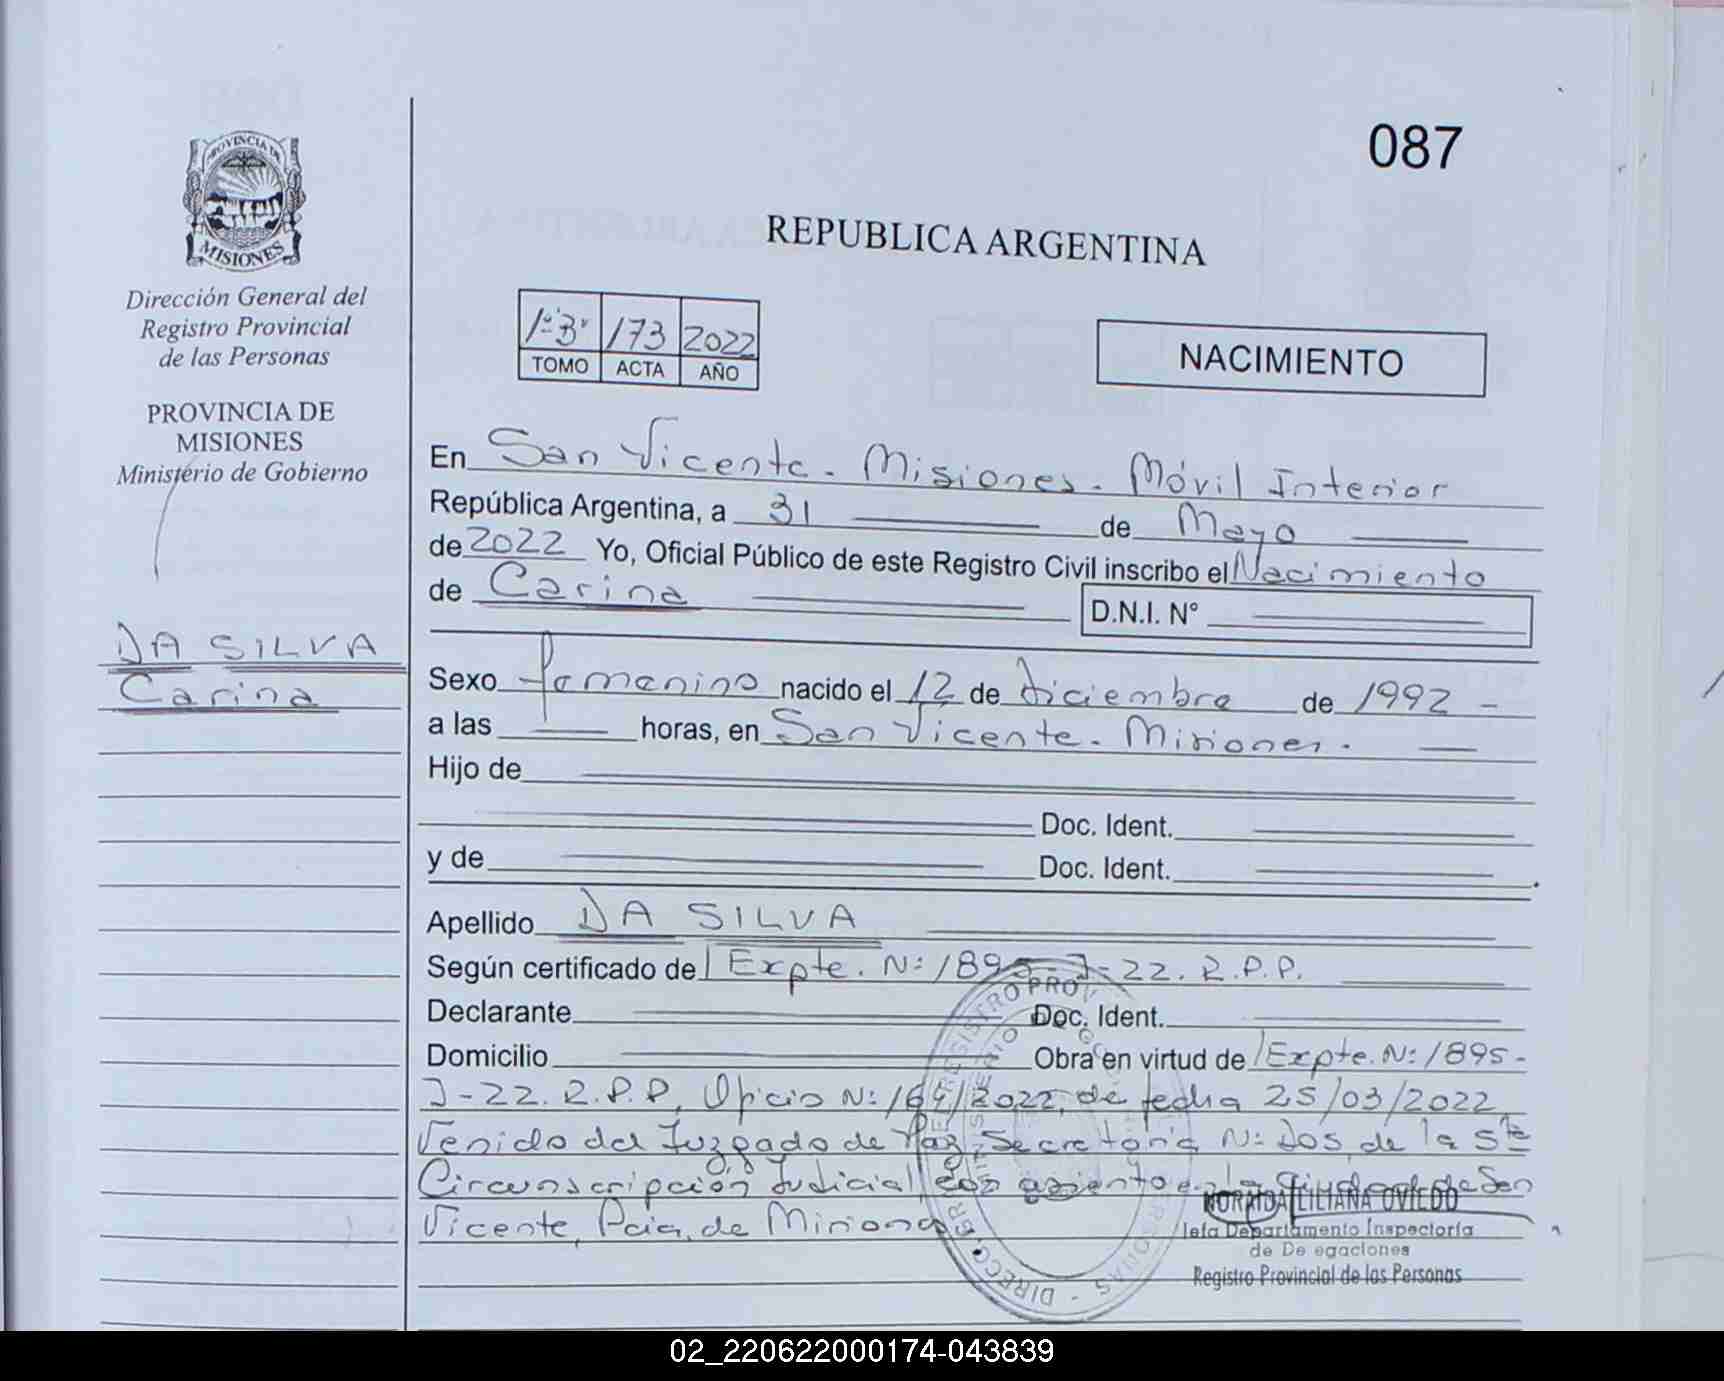 087
PROVINCIA DE
MISIONES
Dirección General del
Registro Provincial
de las Personas
PROVINCIA DE
MISIONES
Ministerio de Gobierno
DA SILVA
Carina
REPUBLICA ARGENTINA
1º"B" 173 2022
TOMO ACTA AÑO
NACIMIENTO
En San Vicente - Misiones - Móvil Interior
República Argentina, a 31 de Mayo
de 2022 Yo, Oficial Público de este Registro Civil inscribo el Nacimiento
de Carina D.N.I. N°
Sexo femenino nacido el 12 de diciembre de 1992 -
a las horas, en San Vicente - Misiones -
Hijo de
Doc. Ident.
y de Doc. Ident.
Apellido DA SILVA
Según certificado de Expte. Nº 1895-J-22. R.P.P.
Declarante Doc. Ident.
Domicilio Obra en virtud de Expte. Nº 1895-
J-22. R.P.P, Oficio Nº 164/2022, de fecha 25/03/2022
Venido del Juzgado de Paz, Secretaría Nº Dos, de la 5ta
Circunscripción Judicial, con asiento en la Ciudad de San
Vicente, Pcia, de Misiones
NORAIDA LILIANA OVIEDO
Jefa Departamento Inspectoría
de De egaciones
Registro Provincial de las Personas
02_220622000174-043839